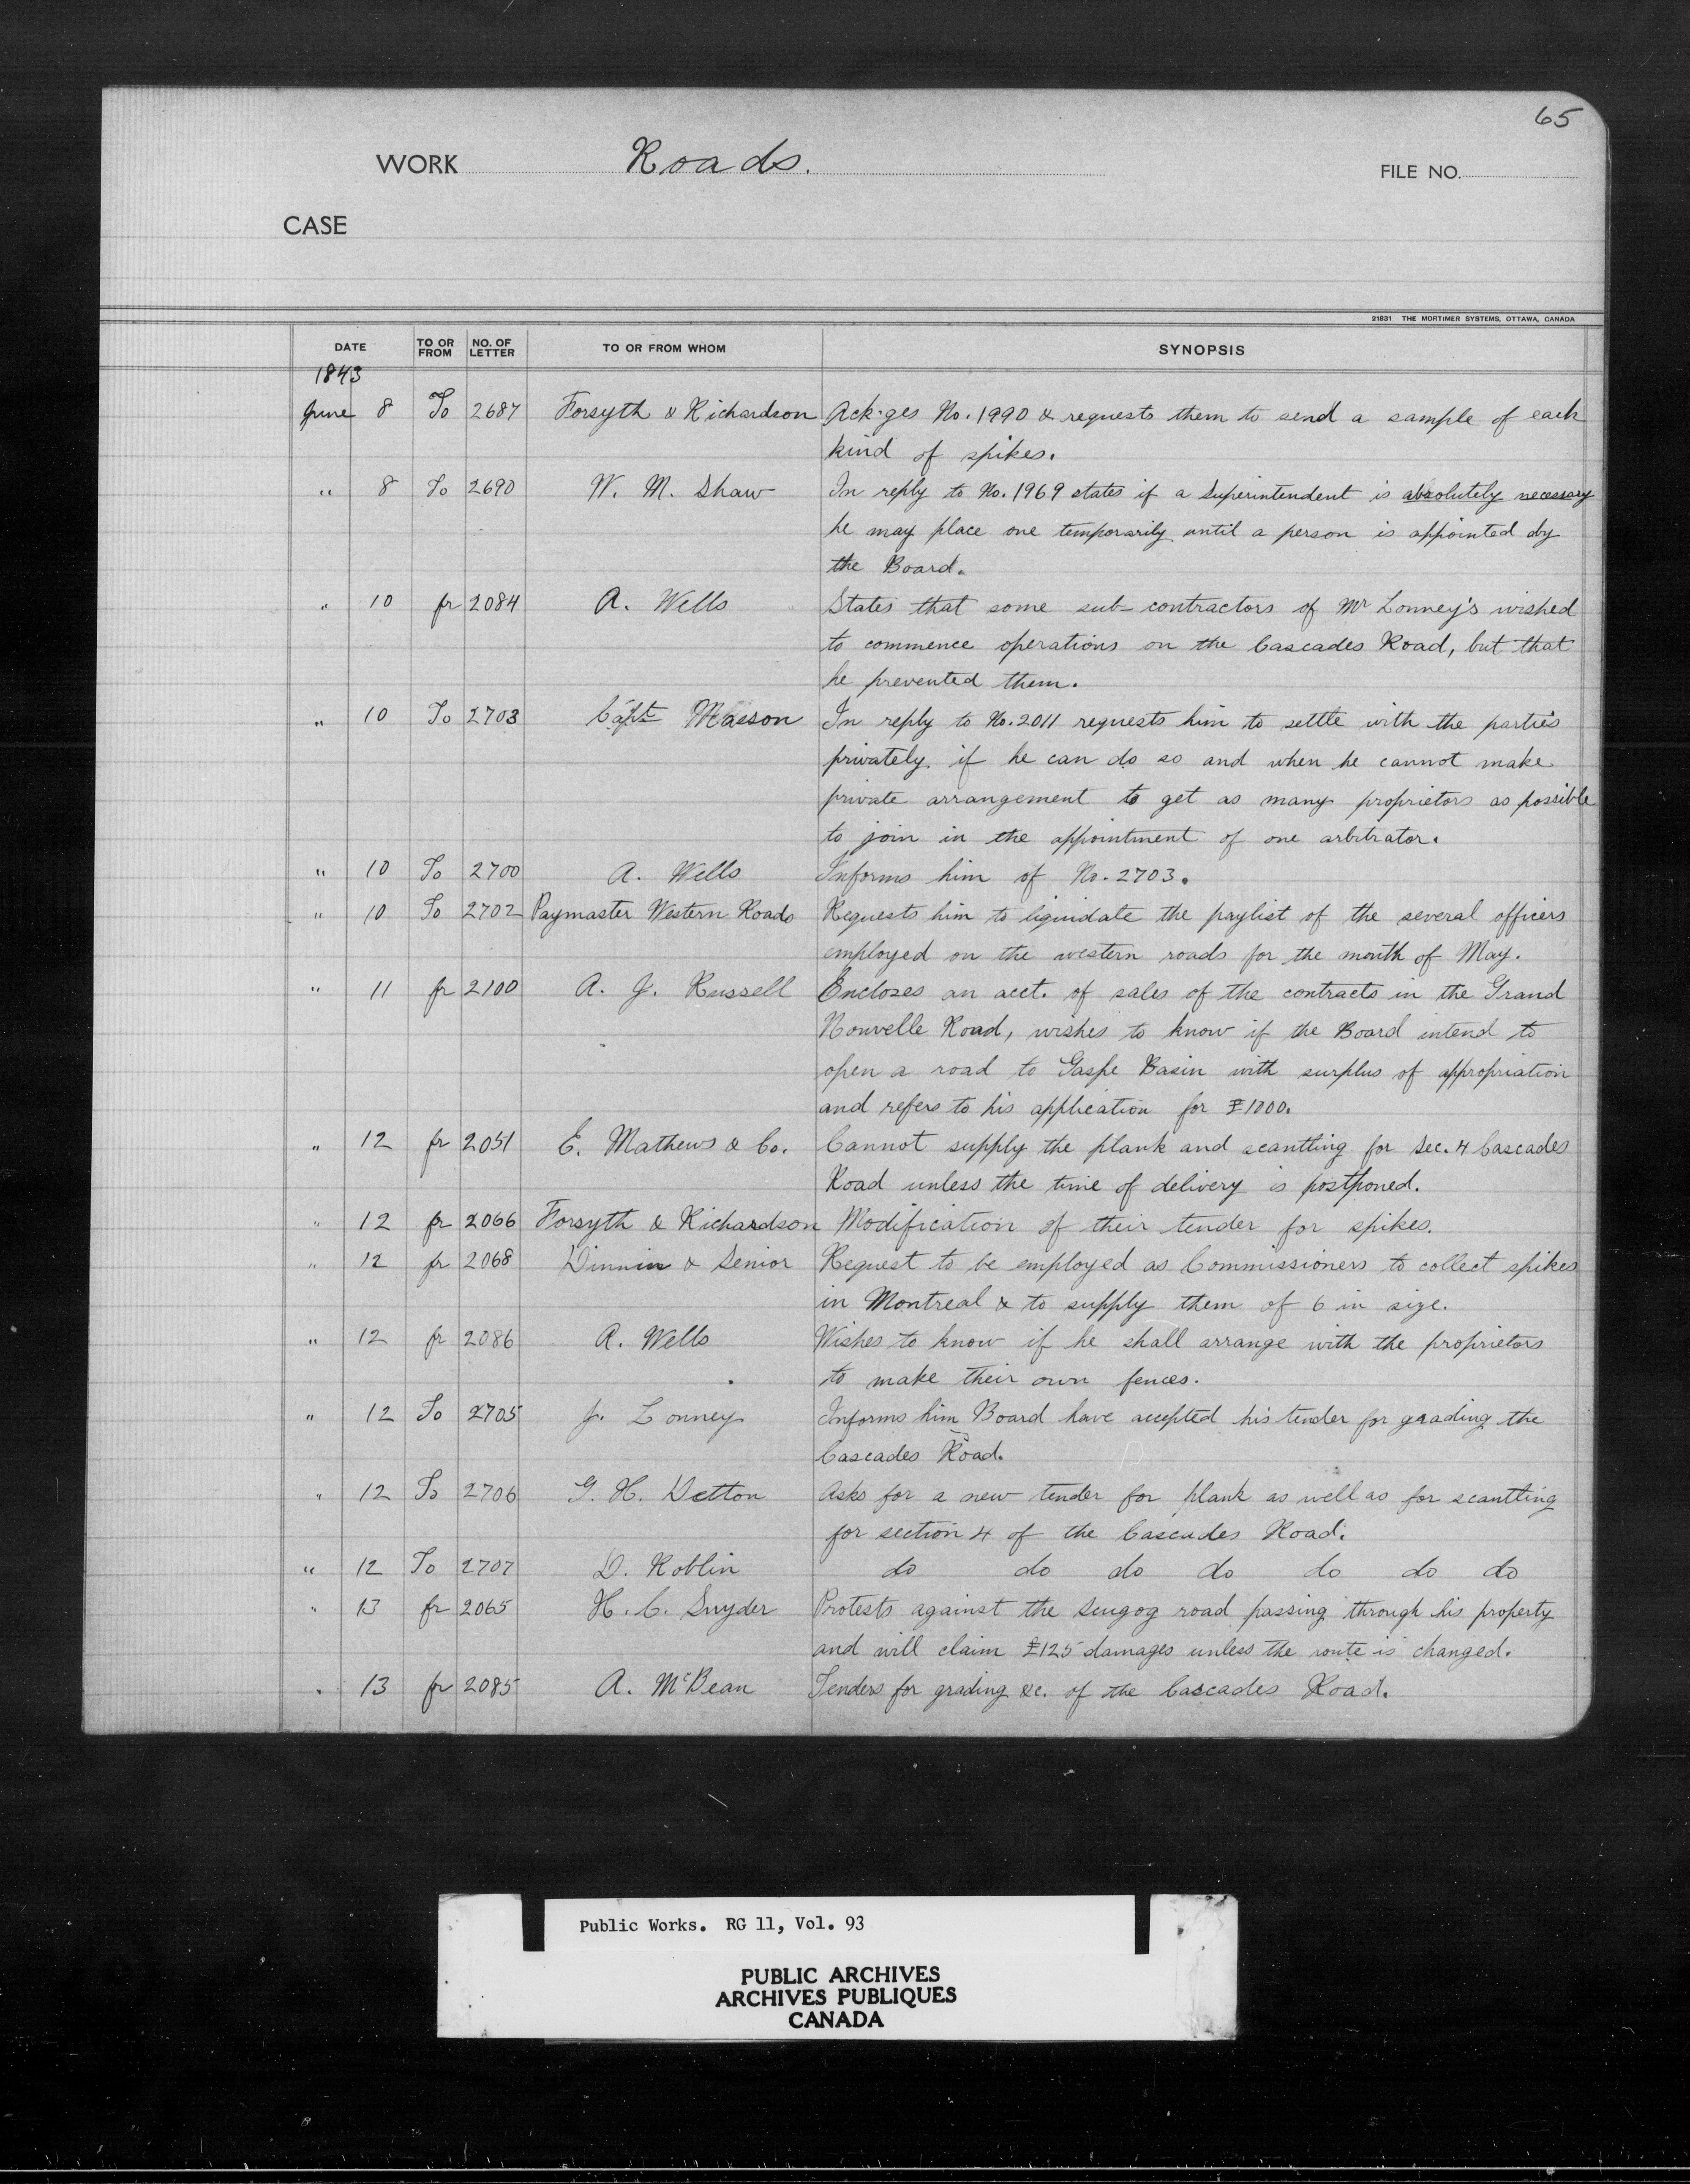 65
WORK Roads.
FILE NO.
CASE
21831 THE MORTIMER SYSTEMS, OTTAWA, CANADA
DATE TO OR FROM NO. OF LETTER TO OR FROM WHOM SYNOPSIS
1843
June 8 To 2687 Forsyth & Richardson Ack·ges No. 1990 & requests them to send a sample of each
kind of spikes.
" 8 To 2690 W. M. Shaw In reply to No. 1969 states if a Superintendent is absolutely necessary
he may place one temporarily until a person is appointed by
the Board.
" 10 fr 2084 A. Wells States that some sub-contractors of Mr Lonney's wished
to commence operations on the Cascades Road, but that
he prevented them.
" 10 To 2703 Capt Masson In reply to No. 2011 requests him to settle with the parties
privately if he can do so and when he cannot make
private arrangement to get as many proprietors as possible
to join in the appointment of one arbitrator.
" 10 To 2700 A. Wells Informs him of No. 2703.
" 10 To 2702 Paymaster Western Roads Requests him to liquidate the paylist of the several officers
employed on the western roads for the month of May.
" 11 fr 2100 A. J. Russell Encloses an acct. of sales of the contracts in the Grand
Nouvelle Road, wishes to know if the Board intend to
open a road to Gaspe Basin with surplus of appropriation
and refers to his application for £1000.
" 12 fr 2051 E. Mathews & Co. Cannot supply the plank and scantling for Sec. 4 Cascades
Road unless the time of delivery is postponed.
" 12 fr 2066 Forsyth & Richardson Modification of their tender for spikes.
" 12 fr 2068 Dinnin & Senior Request to be employed as Commissioners to collect spikes
in Montreal & to supply them of 6 in size.
" 12 fr 2086 A. Wells Wishes to know if he shall arrange with the proprietors
to make their own fences.
" 12 To 2705 J. Lonney Informs him Board have accepted his tender for grading the
Cascades Road.
" 12 To 2706 G. H. Detton Asks for a new tender for plank as well as for scantling
for section 4 of the Cascades Road.
" 12 To 2707 D. Roblin do do do do do do do
" 13 fr 2065 H. C. Snyder Protests against the Scugog road passing through his property
and will claim £125 damages unless the route is changed.
" 13 fr 2085 A. McBean Tenders for grading &c. of the Cascades Road.
Public Works. RG 11, Vol. 93
PUBLIC ARCHIVES
ARCHIVES PUBLIQUES
CANADA